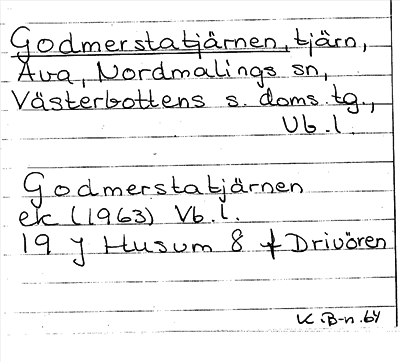 Godmerstatjärnen, tjärn,
Ava, Nordmalings sn,
Västerbottens s. doms. tg.,
Vb. l.
Godmerstatjärnen
ek (1963) Vb. l.
19 J Husum 8 f Drivören
K. B-n. 64